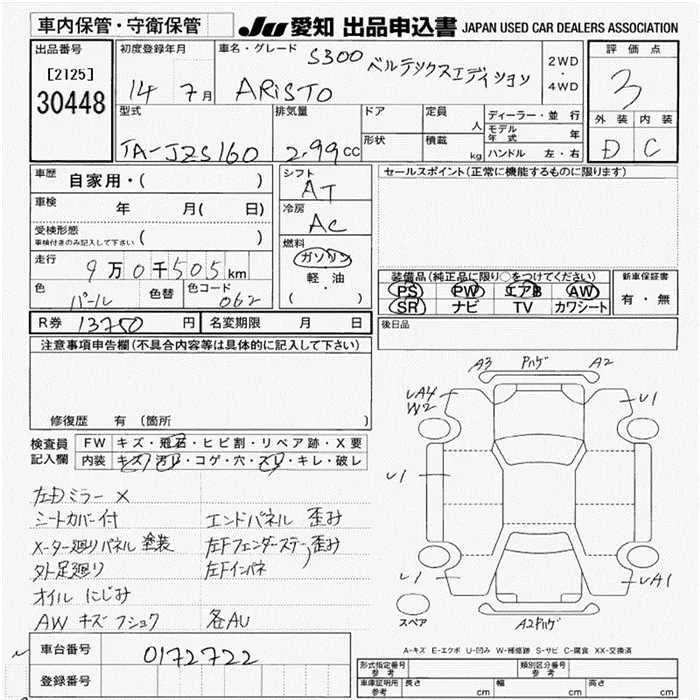 車内保管・守衛保管
JU 愛知 出品申込書 JAPAN USED CAR DEALERS ASSOCIATION
出品番号
[2125]
30448
初度登録年月
14 7月
車名・グレード
S300 ベルテックスエディション
ARISTO
2WD
・
4WD
評価点
3
外装 内装
D C
型式
TA-JZS160
排気量
2.99cc
ドア
形状
定員
人
積載
kg
ディーラー・並行
モデル年式 年
ハンドル 左・右
車歴 自家用・( )
車検 年 月( 日)
受検形態
車検付きのみ記入して下さい ( )
走行 9万0千505km
色 パール
色替
色コード 062
シフト
AT
冷房
AC
燃料
ガソリン
軽・油
( )
セールスポイント(正常に機能するものに限ります)
装備品(純正品に限り○をつけてください)
PS PW エアB AW
SR ナビ TV カワシート
新車保証書
有・無
後日品
R券 13750 円 名変期限 月 日
注意事項申告欄(不具合内容等は具体的に記入して下さい)
修復歴 有 (箇所 )
検査員記入欄
FW キズ・飛石・ヒビ割・リペア跡・X要
内装 キズ・汚れ・コゲ・穴・スリ・キレ・破レ
左日ミラー X
シートカバー付
エンドパネル 歪み
メーター廻りパネル 塗装
左Fフェンダーステー歪み
外足廻り
左Fインパネ
オイル にじみ
AW キズ フショク
各AU
A3 Pハゲ A2
UA4
W2
U1
U1
U1
UA1
A2Pハゲ
スペア
A-キズ E-エクボ U-凹み W-補修跡 S-サビ C-腐食 XX-交換済
車台番号
0172722
登録番号
形式指定番号
参考
類別区分番号
参考
車庫証明用
参考
長さ cm 幅 cm 高さ cm